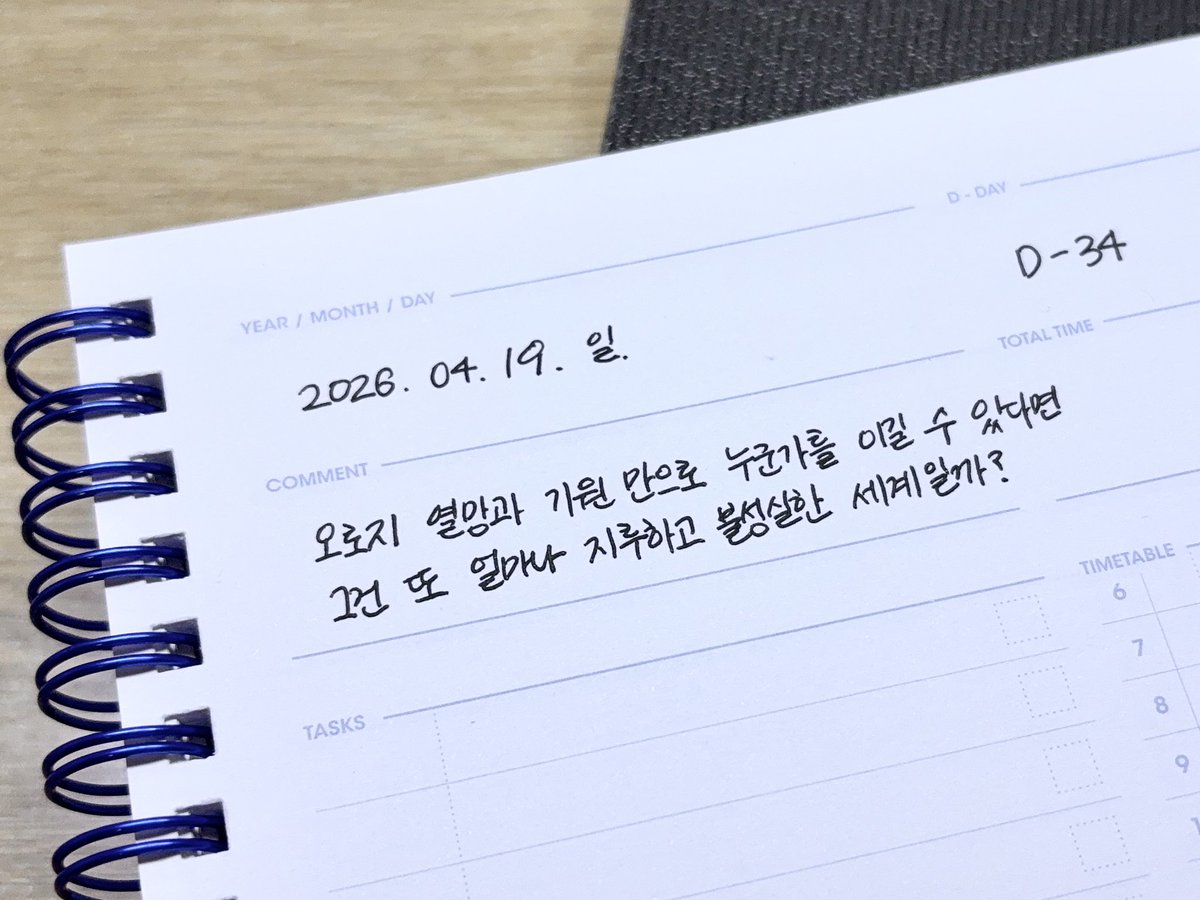 D - DAY
YEAR / MONTH / DAY
D-34
2026. 04. 19. 일.
TOTAL TIME
COMMENT
오로지 열망과 기원 만으로 누군가를 이길 수 있다면
그건 또 얼마나 지루하고 불성실한 세계일까?
TIMETABLE
6
7
TASKS
8
9